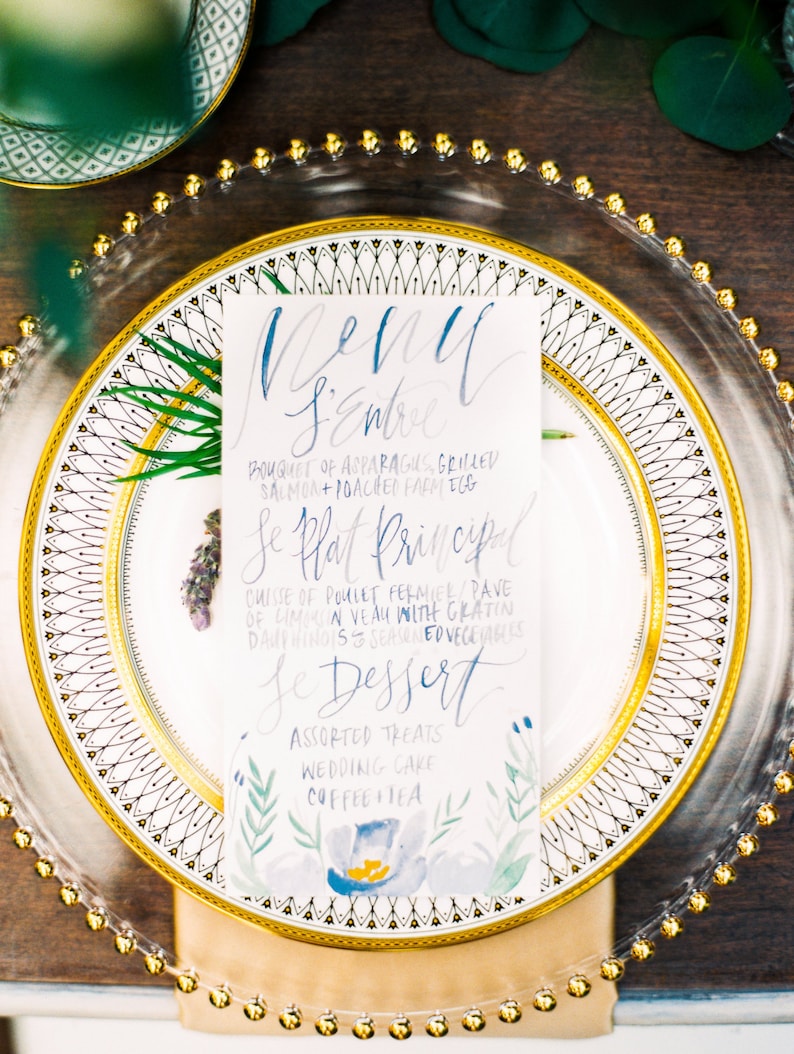 Menu
L'Entree
BOUQUET OF ASPARAGUS, GRILLED
SALMON + POACHED FARM EGG
Le Plat Principal
CUISSE OF POULET FERMIER / PAVE
OF LIMOUSIN VEAU WITH GRATIN
DAUPHINOIS & SEASONED VEGETABLES
Le Dessert
ASSORTED TREATS
WEDDING CAKE
COFFEE + TEA